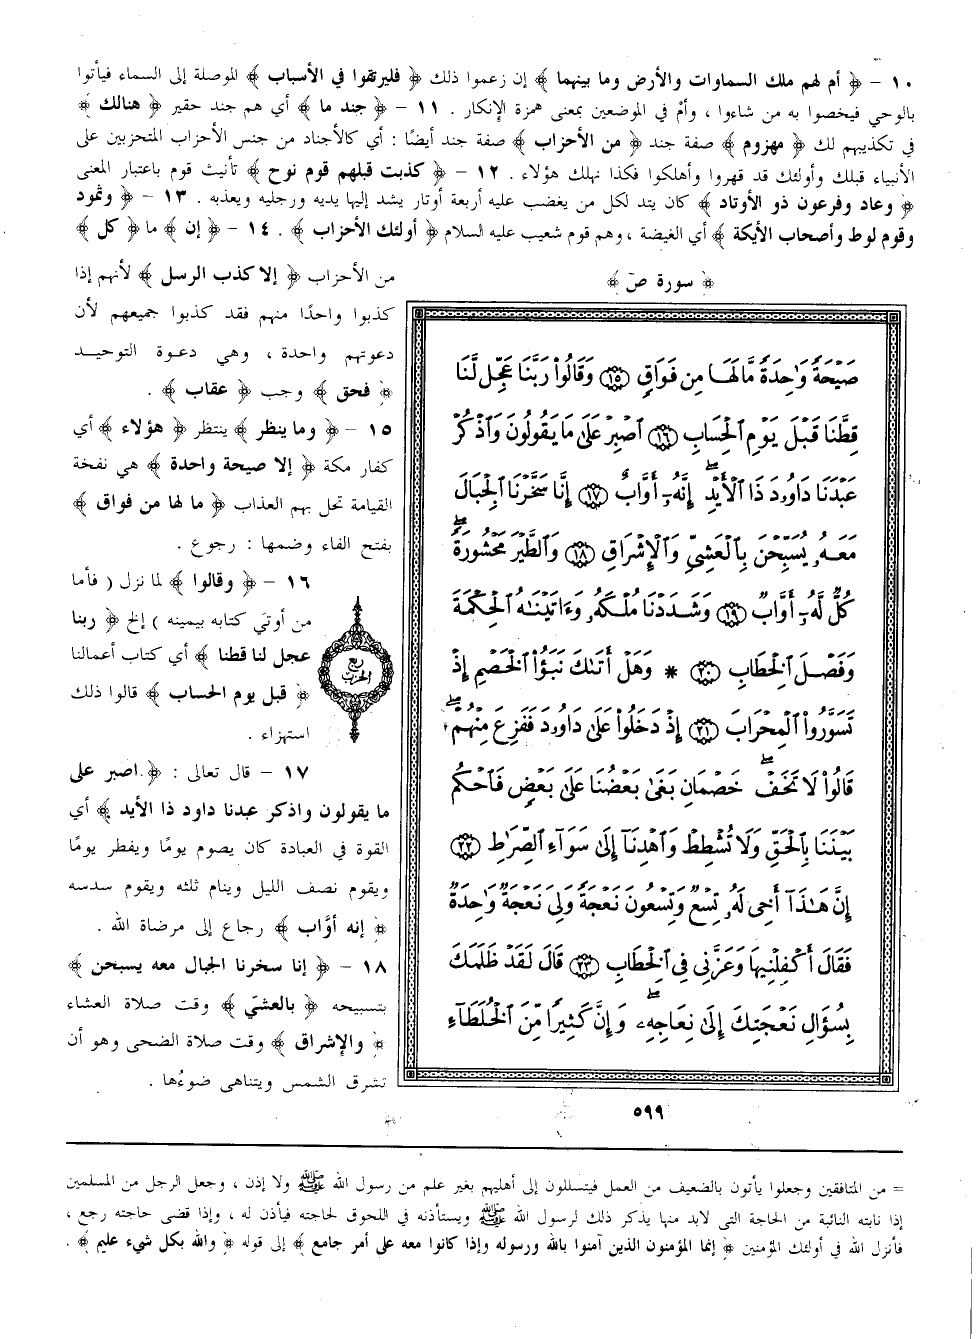 ١٠ - ﴿ أم لهم ملك السماوات والأرض وما بينهما ﴾ إن زعموا ذلك ﴿ فليرتقوا في الأسباب ﴾ الموصلة إلى السماء فيأتوا
بالوحي فيخصوا به من شاءوا ، وأمْ في الموضعين بمعنى همزة الإنكار . ١١ - ﴿ جند ما ﴾ أي هم جند حقير ﴿ هنالك ﴾
في تكذيبهم لك ﴿ مهزوم ﴾ صفة جند ﴿ من الأحزاب ﴾ صفة جند أيضًا : أي كالأجناد من جنس الأحزاب المتحزبين على
الأنبياء قبلك وأولئك قد قهروا وأهلكوا فكذا نهلك هؤلاء . ١٢ - ﴿ كذبت قبلهم قوم نوح ﴾ تأنيث قوم باعتبار المعنى
﴿ وعاد وفرعون ذو الأوتاد ﴾ كان يتد لكل من يغضب عليه أربعة أوتار يشد إليها يديه ورجليه ويعذبه . ١٣ - ﴿ وثمود
وقوم لوط وأصحاب الأيكة ﴾ أي الغيضة ، وهم قوم شعيب عليه السلام ﴿ أولئك الأحزاب ﴾ . ١٤ - ﴿ إن ﴾ ما ﴿ كل ﴾
من الأحزاب ﴿ إلا كذب الرسل ﴾ لأنهم إذا
كذبوا واحدًا منهم فقد كذبوا جميعهم لأن
دعوتهم واحدة ، وهي دعوة التوحيد
﴿ فحق ﴾ وجب ﴿ عقاب ﴾ .
١٥ - ﴿ وما ينظر ﴾ ينتظر ﴿ هؤلاء ﴾ أي
كفار مكة ﴿ إلا صيحة واحدة ﴾ هي نفخة
القيامة تحل بهم العذاب ﴿ ما لها من فواق ﴾
بفتح الفاء وضمها : رجوع .
١٦ - ﴿ وقالوا ﴾ لما نزل ( فأما
من أوتي كتابه بيمينه ) إلخ ﴿ ربنا
عجل لنا قطنا ﴾ أي كتاب أعمالنا
﴿ قبل يوم الحساب ﴾ قالوا ذلك
استهزاء .
١٧ - قال تعالى : ﴿ اصبر على
ما يقولون واذكر عبدنا داود ذا الأيد ﴾ أي
القوة في العبادة كان يصوم يومًا ويفطر يومًا
ويقوم نصف الليل وينام ثلثه ويقوم سدسه
﴿ إنه أوَّاب ﴾ رجاع إلى مرضاة الله .
١٨ - ﴿ إنا سخرنا الجبال معه يسبحن ﴾
بتسبيحه ﴿ بالعشي ﴾ وقت صلاة العشاء
﴿ والإشراق ﴾ وقت صلاة الضحى وهو أن
تشرق الشمس ويتناهى ضوءُها .
ربع
الحزب
﴿ سورة صٓ ﴾
صَيْحَةً وَٰحِدَةً مَّا لَهَا مِن فَوَاقٍ ﴿١٥﴾ وَقَالُوا۟ رَبَّنَا عَجِّل لَّنَا
قِطَّنَا قَبْلَ يَوْمِ ٱلْحِسَابِ ﴿١٦﴾ ٱصْبِرْ عَلَىٰ مَا يَقُولُونَ وَٱذْكُرْ
عَبْدَنَا دَاوُۥدَ ذَا ٱلْأَيْدِ ۖ إِنَّهُۥٓ أَوَّابٌ ﴿١٧﴾ إِنَّا سَخَّرْنَا ٱلْجِبَالَ
مَعَهُۥ يُسَبِّحْنَ بِٱلْعَشِىِّ وَٱلْإِشْرَاقِ ﴿١٨﴾ وَٱلطَّيْرَ مَحْشُورَةً ۖ
كُلٌّ لَّهُۥٓ أَوَّابٌ ﴿١٩﴾ وَشَدَدْنَا مُلْكَهُۥ وَءَاتَيْنَٰهُ ٱلْحِكْمَةَ
وَفَصْلَ ٱلْخِطَابِ ﴿٢٠﴾ * وَهَلْ أَتَىٰكَ نَبَؤُا۟ ٱلْخَصْمِ إِذْ
تَسَوَّرُوا۟ ٱلْمِحْرَابَ ﴿٢١﴾ إِذْ دَخَلُوا۟ عَلَىٰ دَاوُۥدَ فَفَزِعَ مِنْهُمْ ۖ
قَالُوا۟ لَا تَخَفْ ۖ خَصْمَانِ بَغَىٰ بَعْضُنَا عَلَىٰ بَعْضٍ فَٱحْكُم
بَيْنَنَا بِٱلْحَقِّ وَلَا تُشْطِطْ وَٱهْدِنَآ إِلَىٰ سَوَآءِ ٱلصِّرَٰطِ ﴿٢٢﴾
إِنَّ هَٰذَآ أَخِى لَهُۥ تِسْعٌ وَتِسْعُونَ نَعْجَةً وَلِىَ نَعْجَةٌ وَٰحِدَةٌ
فَقَالَ أَكْفِلْنِيهَا وَعَزَّنِى فِى ٱلْخِطَابِ ﴿٢٣﴾ قَالَ لَقَدْ ظَلَمَكَ
بِسُؤَالِ نَعْجَتِكَ إِلَىٰ نِعَاجِهِۦ ۖ وَإِنَّ كَثِيرًا مِّنَ ٱلْخُلَطَآءِ
٥٩٩
= من المتافقين وجعلوا يأتون بالضعيف من العمل فيتسللون إلى أهليهم بغير علم من رسول الله ﷺ ولا إذن ، وجعل الرجل من المسلمين
إذا نابته النائبة من الحاجة التى لابد منها يذكر ذلك لرسول الله ﷺ ويستأذنه في اللحوق لحاجته فيأذن له ، وإذا قضى حاجته رجع ،
فأنزل الله في أولئك المؤمنين ﴿ إنما المؤمنون الذين آمنوا بالله ورسوله وإذا كانوا معه على أمر جامع ﴾ إلى قوله ﴿ والله بكل شيء عليم ﴾ .